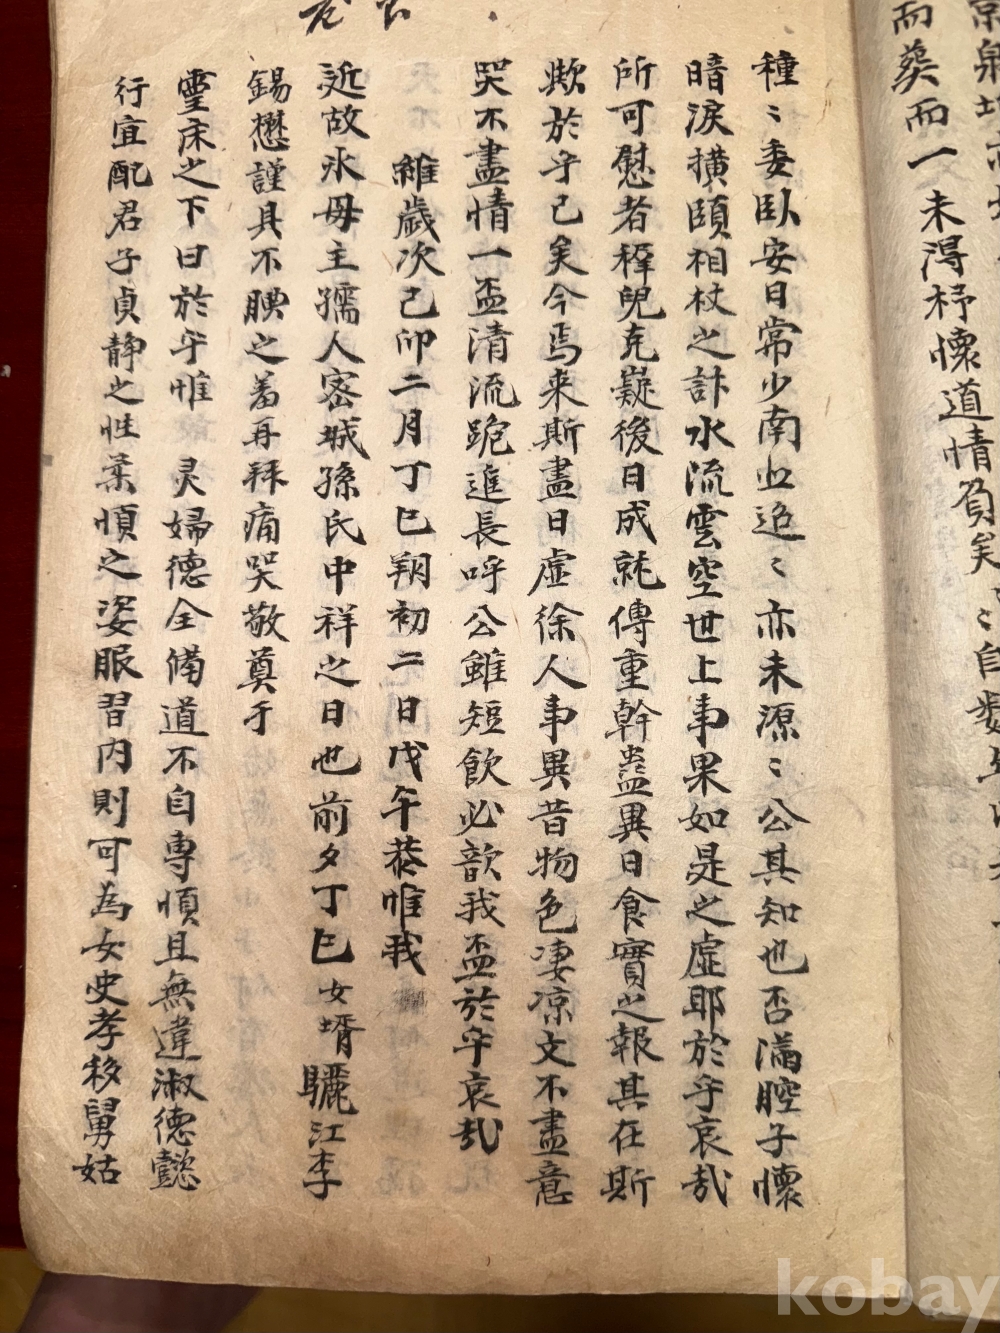 而葬而一未得抒懷道情負矣
種〻委臥安日常少南北迢〻亦未源〻公其知也否滿腔子懷
暗淚撗頤相杖之訃水流雲空世上事果如是之虛耶於乎哀哉
所可慰者稺兒克嶷後日成就傳重幹蠱異日食實之報其在斯
歟於乎已矣今焉来斯盡日虛徐人事異昔物色凄凉文不盡意
哭不盡情一盃清流跪進長呼公雖短飲必歆我盃於乎哀哉
維歲次己卯二月丁巳朔初二日戊午恭惟我
近故氷母主孺人密城孫氏中祥之日也前夕丁巳女壻驪江李
錫懋謹具不腆之羞再拜痛哭敬奠于
靈床之下曰於乎惟灵婦德全備道不自專順且無違淑德懿
行宜配君子貞静之性柔順之姿服習內則可為女史孝移舅姑
kobay